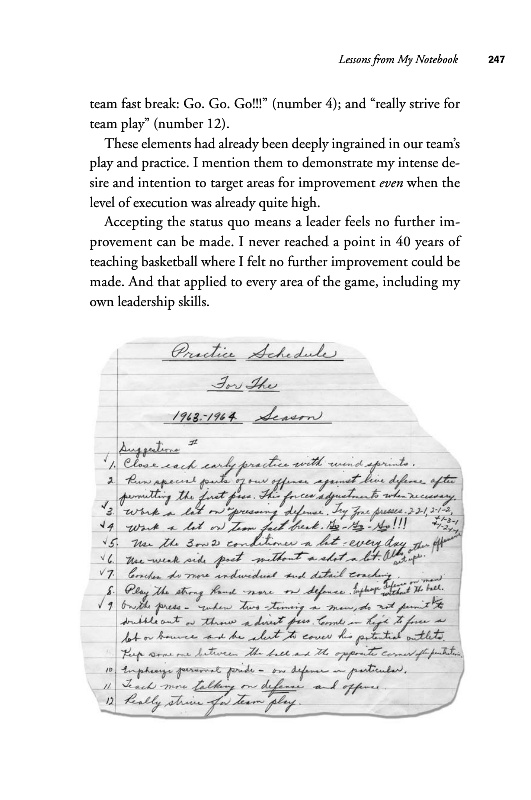 Lessons from My Notebook 247
team fast break: Go. Go. Go!!!” (number 4); and “really strive for
team play” (number 12).
These elements had already been deeply ingrained in our team’s
play and practice. I mention them to demonstrate my intense de-
sire and intention to target areas for improvement even when the
level of execution was already quite high.
Accepting the status quo means a leader feels no further im-
provement can be made. I never reached a point in 40 years of
teaching basketball where I felt no further improvement could be
made. And that applied to every area of the game, including my
own leadership skills.
Practice Schedule
For The
1963-1964 Season
Suggestions #
✓1. Close each early practice with wind sprints.
2 Run special parts of our offense against live defense after
permitting the first pass. This forces adjustments when necessary.
✓3 Work a lot on pressing defense. Try zone presses. 2-2-1, 2-1-2,
✓4 Work a lot on team fast break. Go - Go - Go!!!
✓5. Use the 3 on 2 conditioner a lot - every day.
✓6. Use weak side post without a shot a lot. Also other offensive
✓7. Coaches do more individual and detail coaching.
8. Play the strong hand more on defense. Emphasize defense on man
without the ball.
✓9 On the press - when two-timing a man, do not permit to
dribble out or throw a direct pass. Come in high to force a
lob or bounce and be alert to cover his potential outlets.
Keep some one between the ball and the opposite corner
10 Emphasize personal pride - on defense in particular.
11 Teach more talking on defense and offense.
12 Really strive for team play.